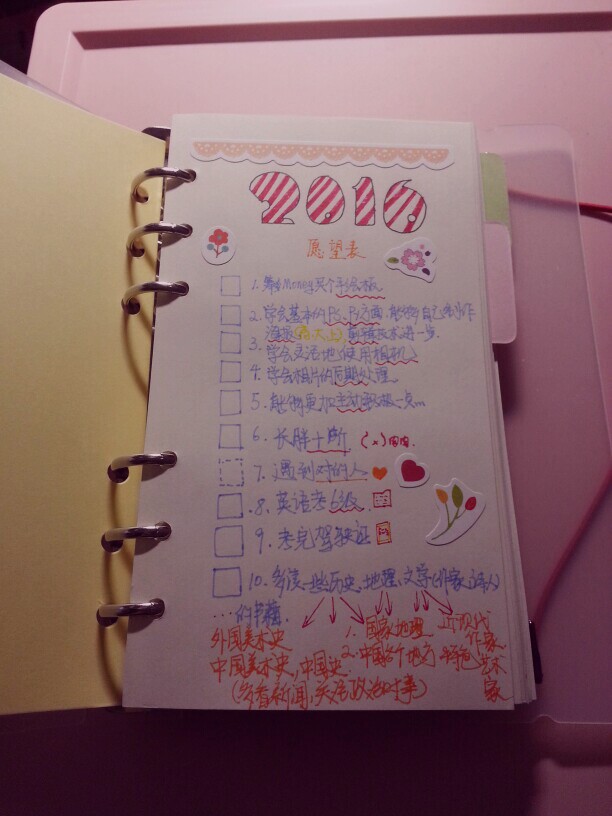 2016
愿望表
1. Money买个手绘板
2. 学会基本的PS、Pr方面,能够自己制作
海报,剪辑技术进一步.
3. 学会灵活地使用相机
4. 学会相片的后期处理.
5. 能够更加主动积极一点...
6. 长胖十斤 (×)
7. 遇到对的人
8. 英语考6级.
9. 考完驾驶证
10. 多读一些历史、地理、文学(作家、诗人)
...的书籍.
外国美术史 1. 国家地理 近现代
作家
中国美术史,中国史. 2. 中国各个地方特色 艺术
家
(多看新闻,关注政治时事)